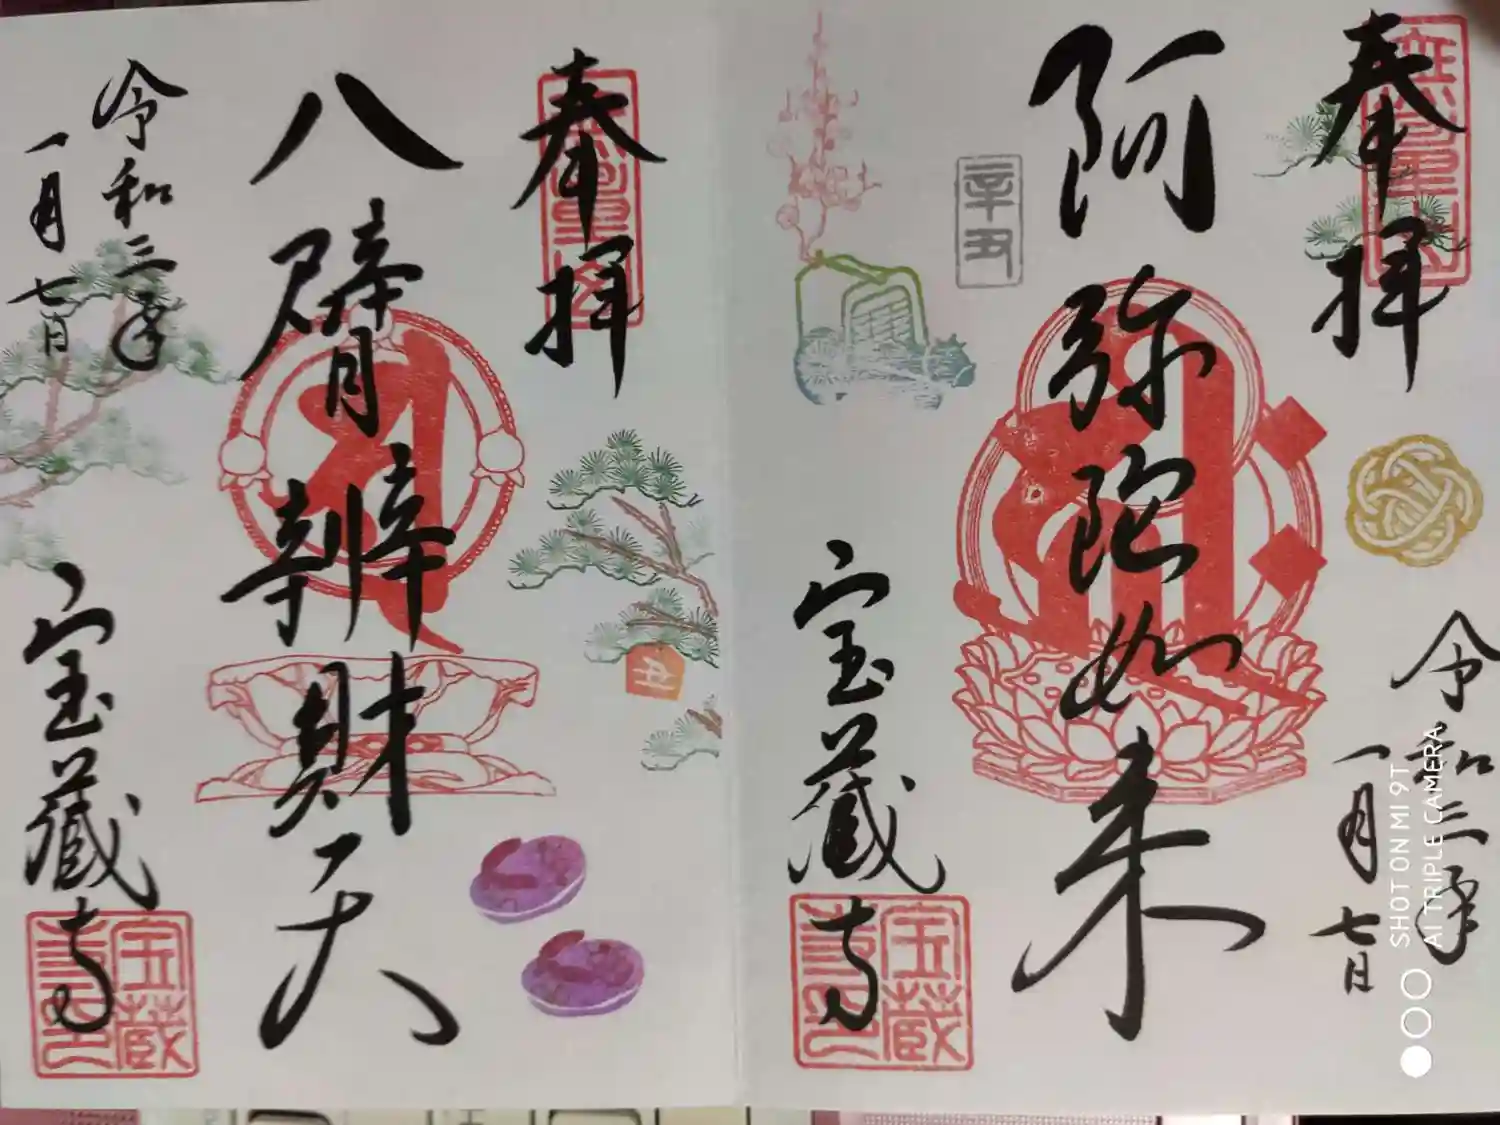 奉拝
阿弥陀如来
令和三年
一月七日
辛丑
宝蔵寺
宝蔵寺印
奉拝
八臂辨財天
令和三年
一月七日
丑
宝蔵寺
宝蔵寺印
SHOT ON MI 9T
AI TRIPLE CAMERA